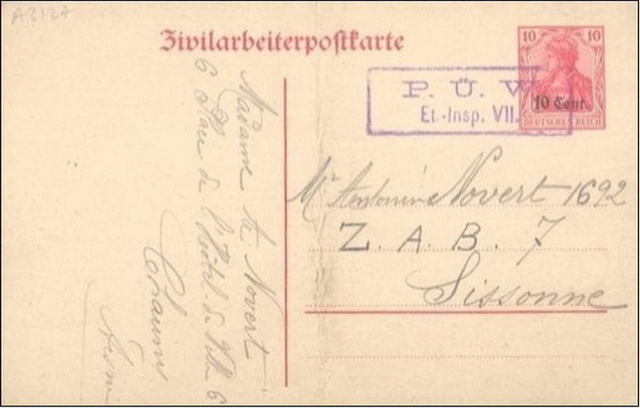 A3127
Zivilarbeiterpostkarte
10 10
10 Cent.
DEUTSCHES REICH
P. Ü. W.
Et.-Insp. VII.
Mr Antonin Novert 1692
Z. A. B. 7
Sissonne
Madame Novert
6 de l'Hôtel de Ville 6
Chauny
Aisne